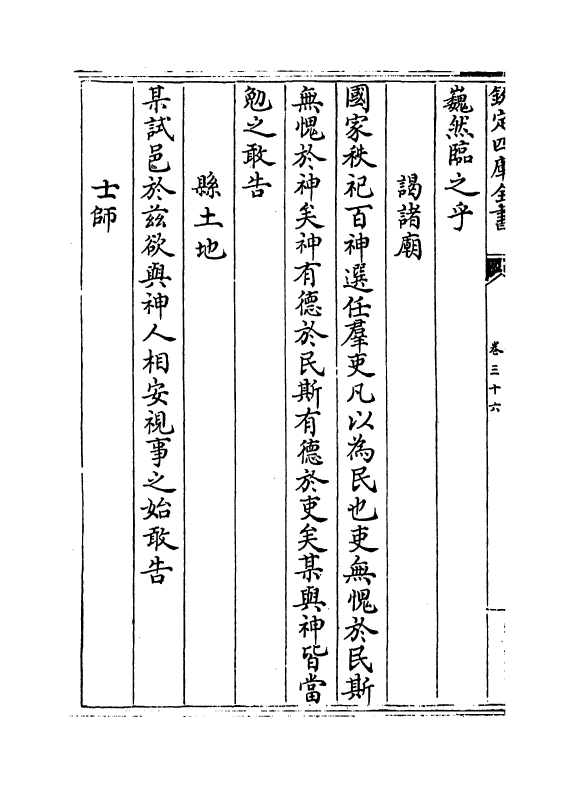 欽定四庫全書
卷三十六
巍然臨之乎
謁諸廟
國家秩祀百神選任羣吏凡以為民也吏無愧於民斯
無愧於神矣神有德於民斯有德於吏矣某與神皆當
勉之敢告
縣土地
某試邑於兹欲與神人相安視事之始敢告
士師